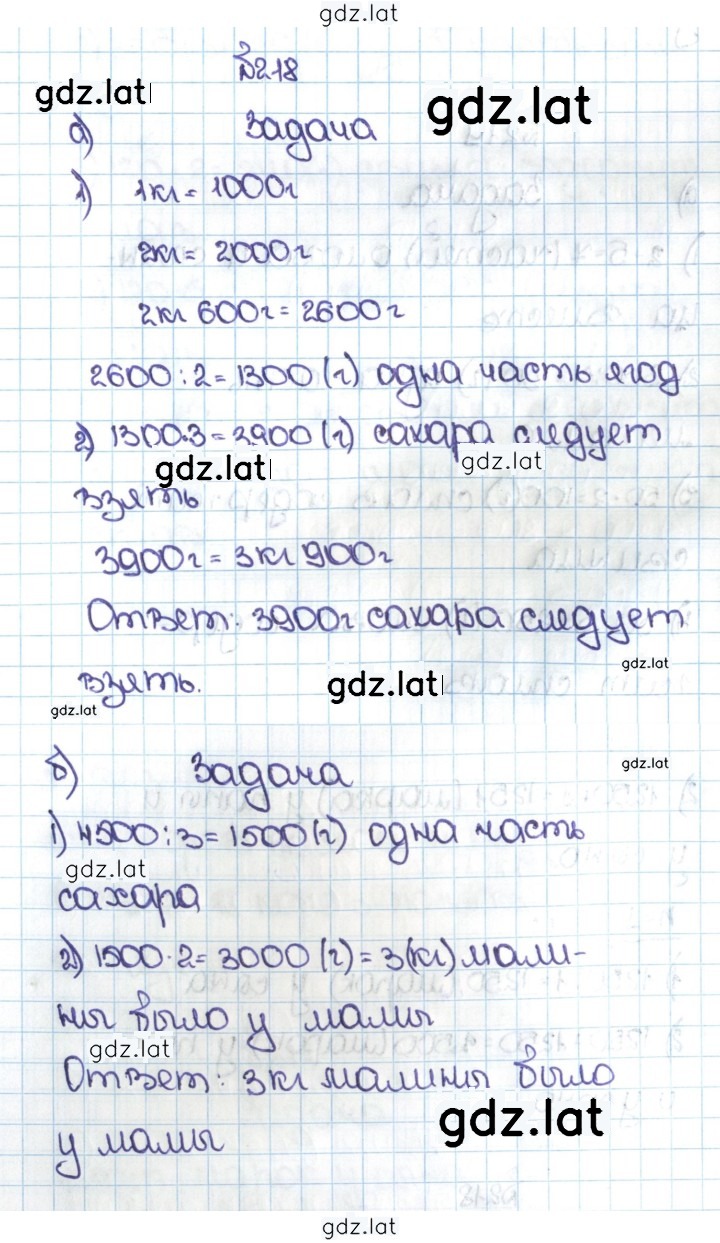 gdz.lat
№218
gdz.lat
gdz.lat
а) Задача
1) 1кг = 1000г
2кг = 2000г
2кг 600г = 2600г
2600 : 2 = 1300 (г) одна часть ягод
2) 1300·3 = 3900 (г) сахара следует
gdz.lat
gdz.lat
взять
3900г = 3кг 900г
Ответ: 3900г сахара следует
gdz.lat
взять.
gdz.lat
gdz.lat
б) Задача
gdz.lat
1) 4500 : 3 = 1500 (г) одна часть
gdz.lat
сахара
2) 1500·2 = 3000 (г) = 3(кг) мали-
ны было у мамы
gdz.lat
Ответ: 3кг малины было
gdz.lat
у мамы
gdz.lat